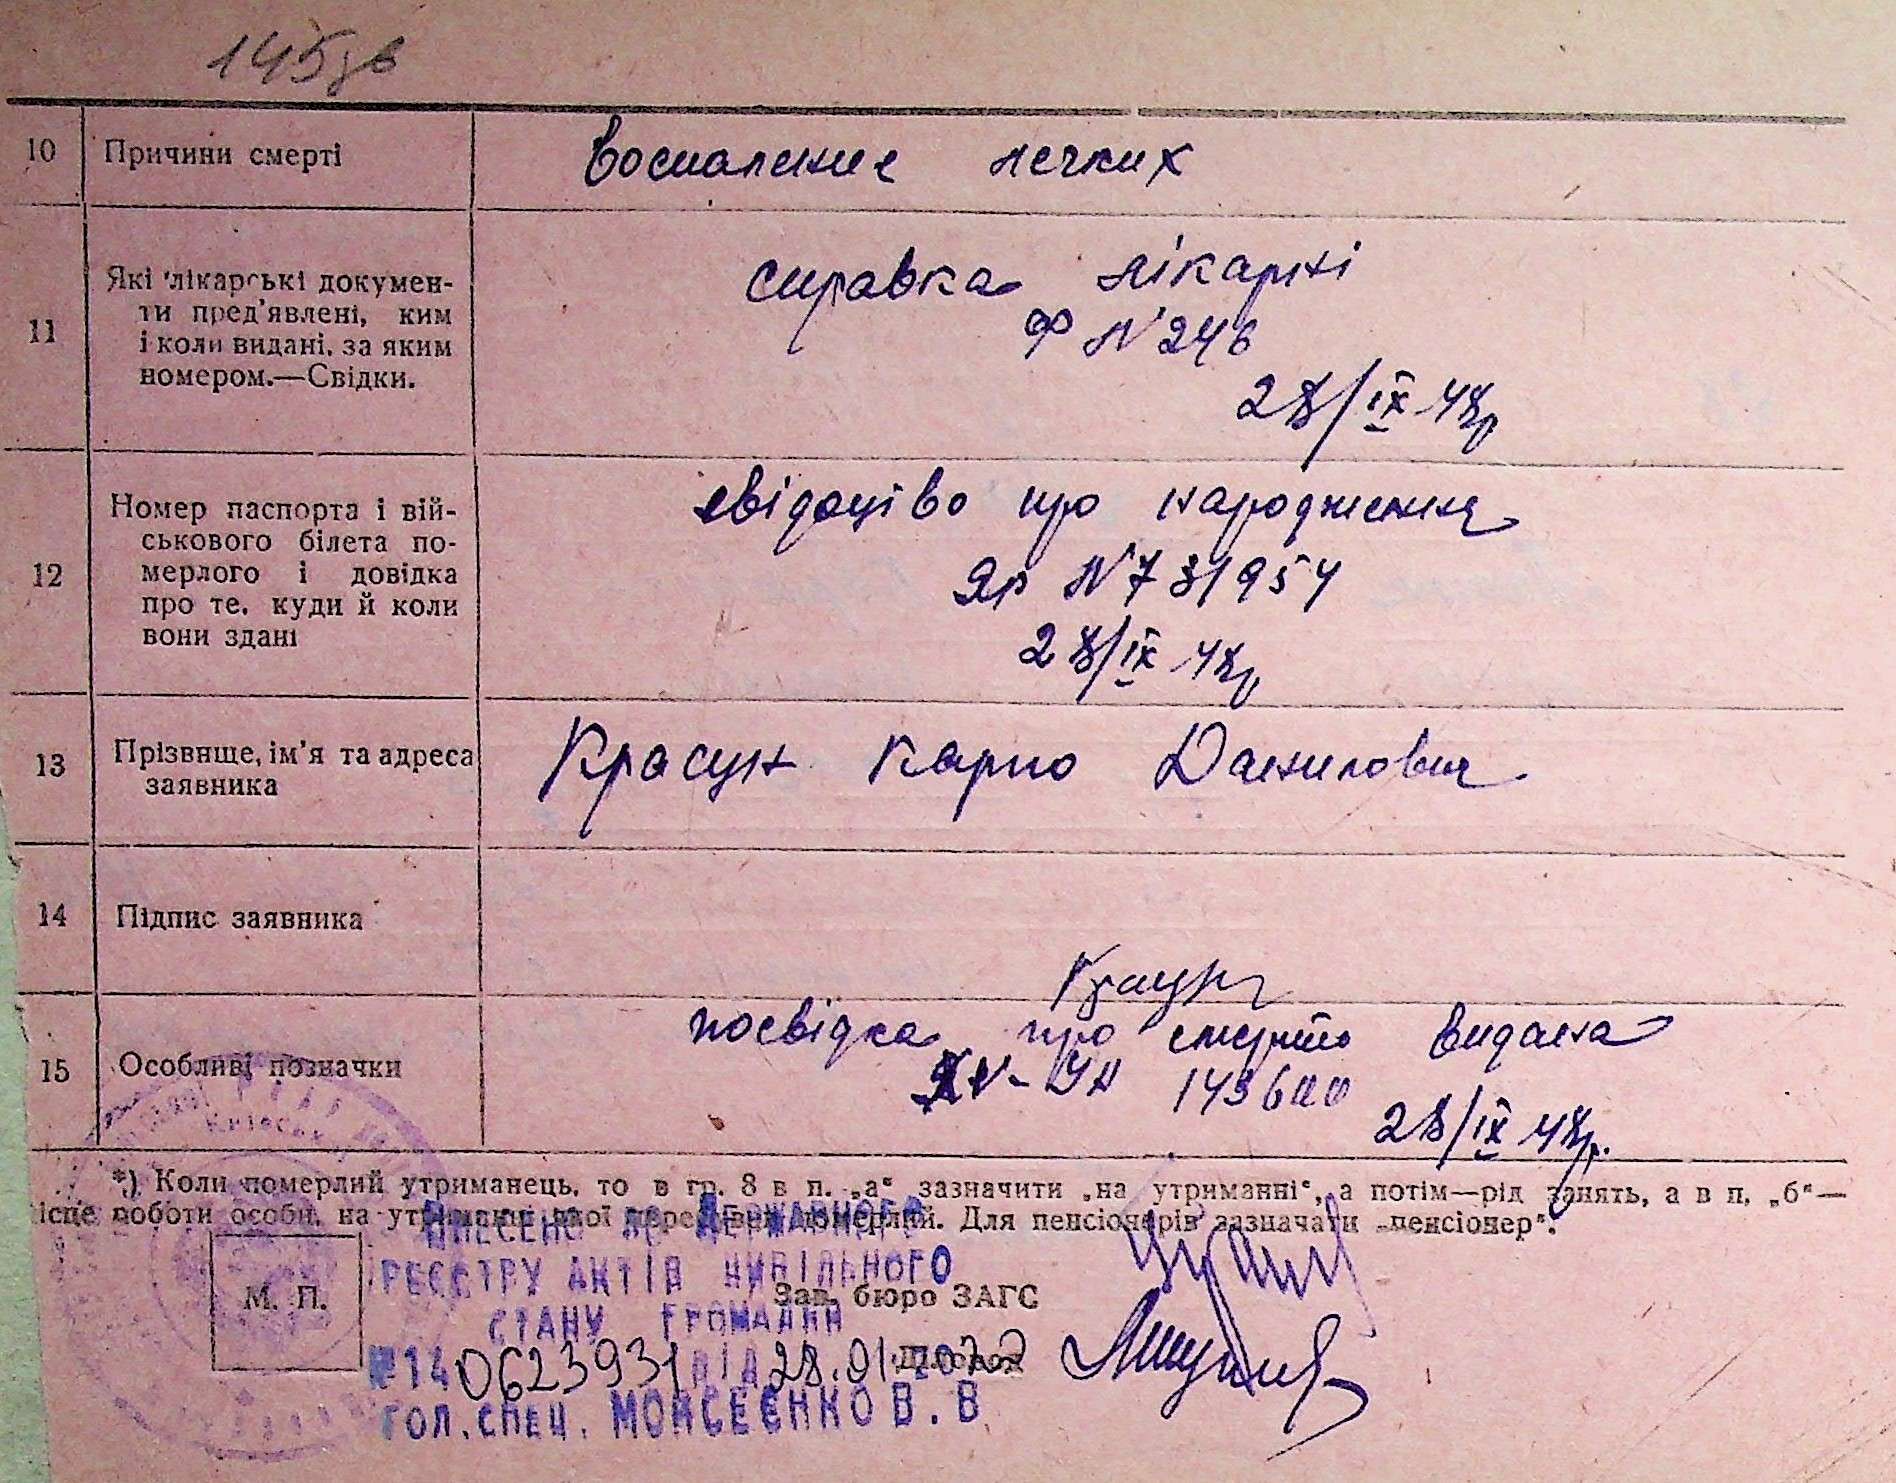 145зв
10 Причини смерті воспаление легких
11 Які лікарські докумен-
ти пред'явлені, ким
і коли видані, за яким
номером.—Свідки.
справка лікарні
Ф N 246
28/IX 48р
12 Номер паспорта і вій-
ськового білета по-
мерлого і довідка
про те, куди й коли
вони здані
свідоцтво про народження
N 731954
28/IX 48р
13 Прізвище, ім'я та адреса
заявника
Красун Карпо Данилович
14 Підпис заявника
Красун
15 Особливі позначки
посвідка про смерть видана
143600
28/IX 48р.
*) Коли померлий утриманець, то в гр. 8 в п. „а“ зазначити „на утриманні“, а потім—рід занять, а в п. „б“—
місце роботи особи, на утриманні якої перебував померлий. Для пенсіонерів зазначати „пенсіонер“.
ВНЕСЕНО ДО ДЕРЖАВНОГО
РЕЄСТРУ АКТІВ ЦИВІЛЬНОГО
М. П.
Зав. бюро ЗАГС
СТАНУ ГРОМАДЯН
№ 140623931 ВІД 28.01.2022
Діловод
ГОЛ.СПЕЦ. МОИСЕЄНКО В.В